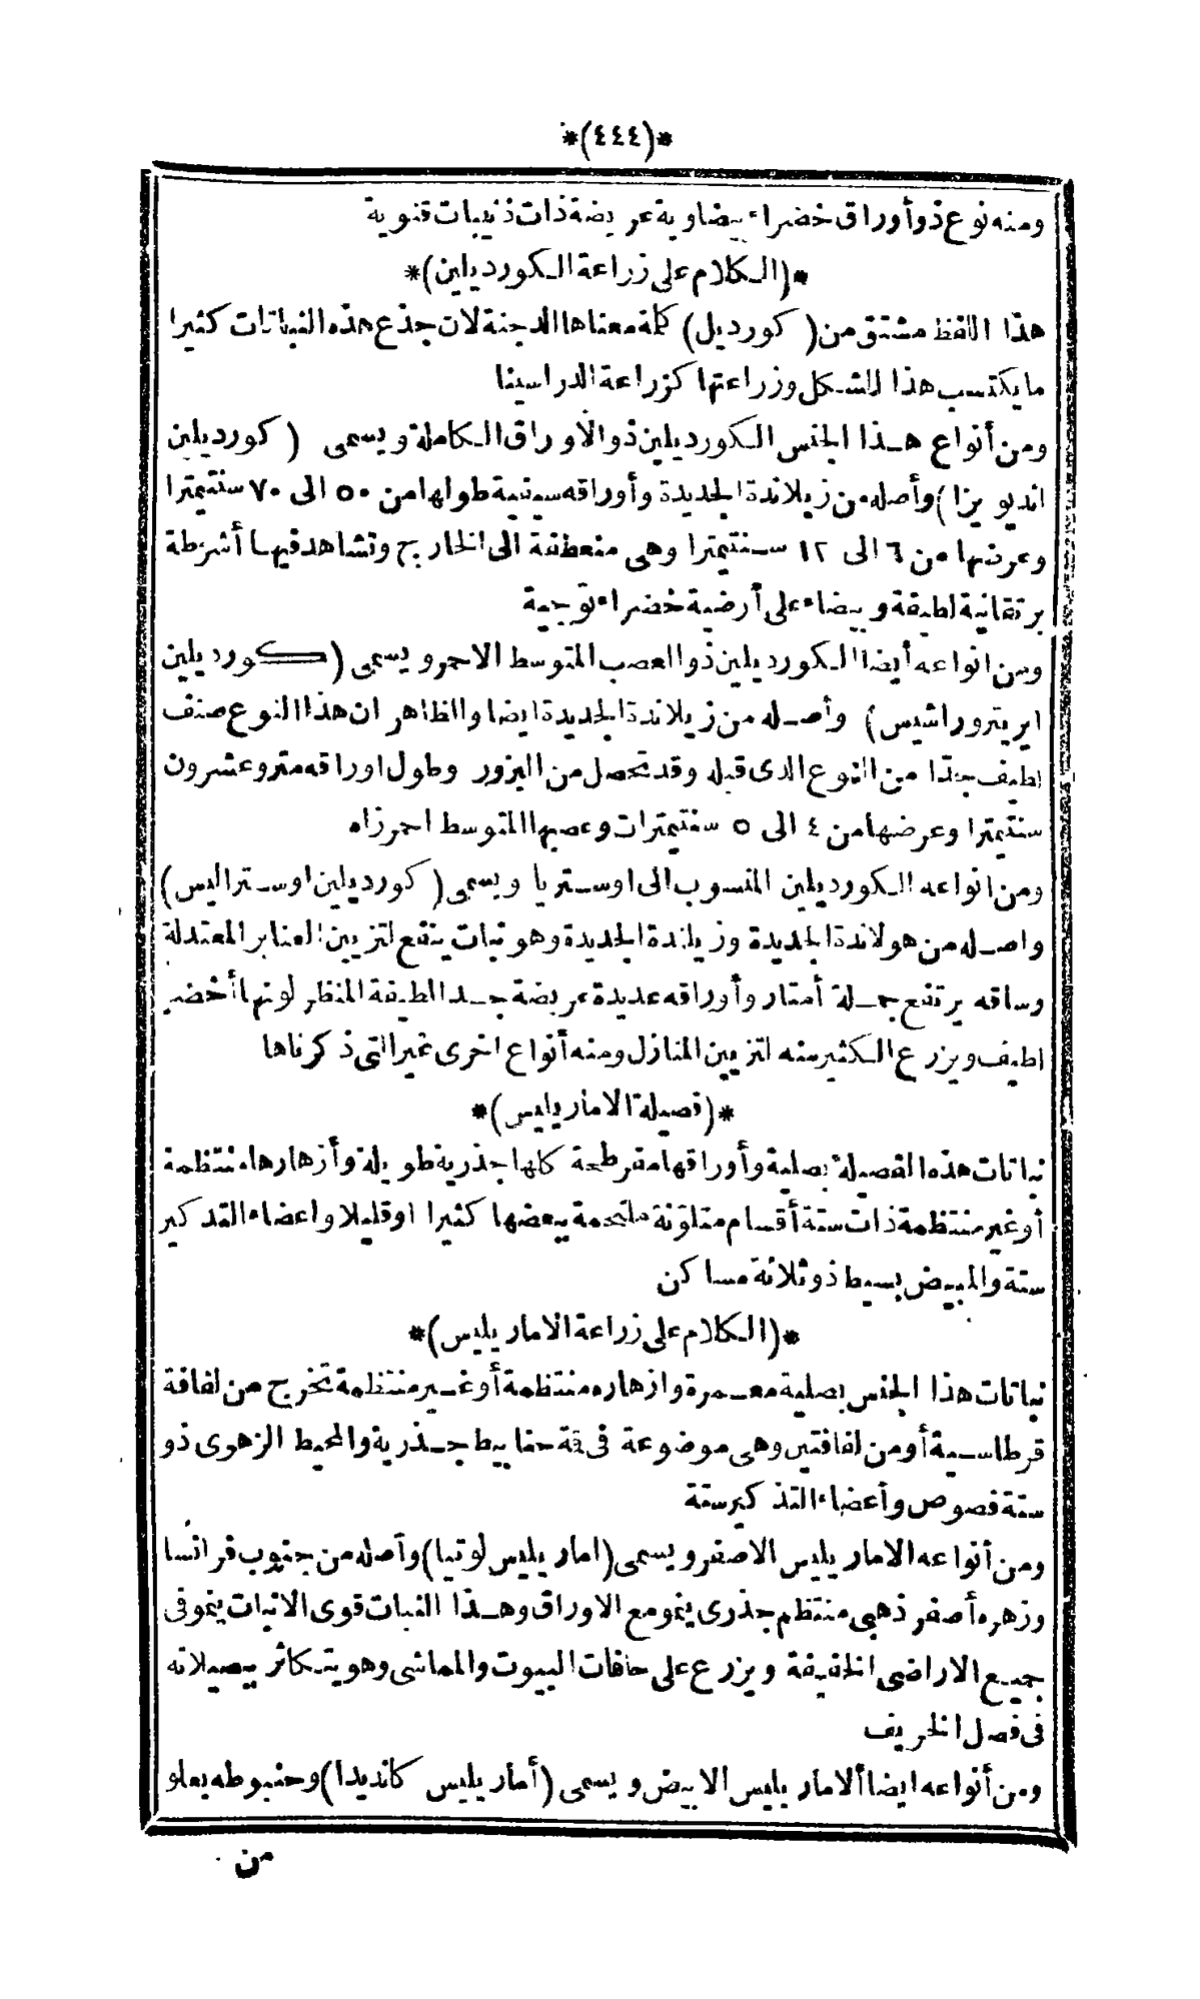 *(٤٤٤)*
ومنه نوع ذو أوراق خضراء بيضاوية عريضة ذات ذنيبات قنوية
*(الكلام على زراعة الكورديلين)*
هذا اللفظ مشتق من (كورديل) كلمة معناها الدجنة لان جذع هذه النباتات كثيرا
ما يكتسب هذا الشكل وزراعتها كزراعة الدراسينا
ومن أنواع هذا الجنس الكورديلين ذو الأوراق الكاملة ويسمى (كورديلين
انديويزا) وأصله من زيلاندة الجديدة وأوراقه سيفية طولها من ٥٠ الى ٧٠ سنتيمترا
وعرضها من ٦ الى ١٢ سنتيمترا وهى منعطفة الى الخارج وتشاهد فيها أشرطة
برتقانية لطيفة وبيضاء على أرضية خضراء توجية
ومن انواعه أيضا الكورديلين ذو العصب المتوسط الاحمر ويسمى (كورديلين
ايريتروراشيس) وأصله من زيلاندة الجديدة ايضا والظاهر ان هذا النوع صنف
لطيف جدا من النوع الذى قبله وقد تحصل من البزور وطول اوراقه متر وعشرون
سنتيمترا وعرضها من ٤ الى ٥ سنتيمترات وعصبها المتوسط احمر زاه
ومن انواعه الكورديلين المنسوب الى اوستريا ويسمى (كورديلين اوستراليس)
واصله من هولاندة الجديدة وزيلندة الجديدة وهو نبات ينفع لتزيين العنابر المعتدلة
وساقه يرتفع جملة أمتار وأوراقه عديدة عريضة جدا لطيفة المنظر لونها أخضر
لطيف ويزرع الكثير منه لتزيين المنازل ومنه أنواع اخرى غير التى ذكرناها
*(فصيلة الامارياليس)*
نباتات هذه الفصيلة بصلية وأوراقها مفرطحة كلها جذرية طويلة وأزهارها منتظمة
أو غير منتظمة ذات ستة أقسام متلونة ملتحمة ببعضها كثيرا او قليلا واعضاء التذكير
ستة والمبيض بسيط ذو ثلاثة مساكن
*(الكلام على زراعة الاماريليس)*
نباتات هذا الجنس بصلية معمرة وازهاره منتظمة أو غير منتظمة تخرج من لفافة
قرطاسية أو من لفافتين وهى موضوعة فى قمة حنابيط جذرية والمحيط الزهرى ذو
ستة فصوص وأعضاء التذكير ستة
ومن أنواعه الاماريليس الاصفر ويسمى (اماريليس لوتيا) وأصله من جنوب فرانسا
وزهره أصفر ذهبى منتظم جذرى ينمو مع الاوراق وهذا النبات قوى الانبات ينمو فى
جميع الاراضى الخفيفة ويزرع على حافات البيوت والمماشى وهو يتكاثر ببصيلاته
فى فصل الخريف
ومن أنواعه ايضا ألاماريليس الابيض ويسمى (أماريليس كانديدا) وحنبوطه يعلو
من